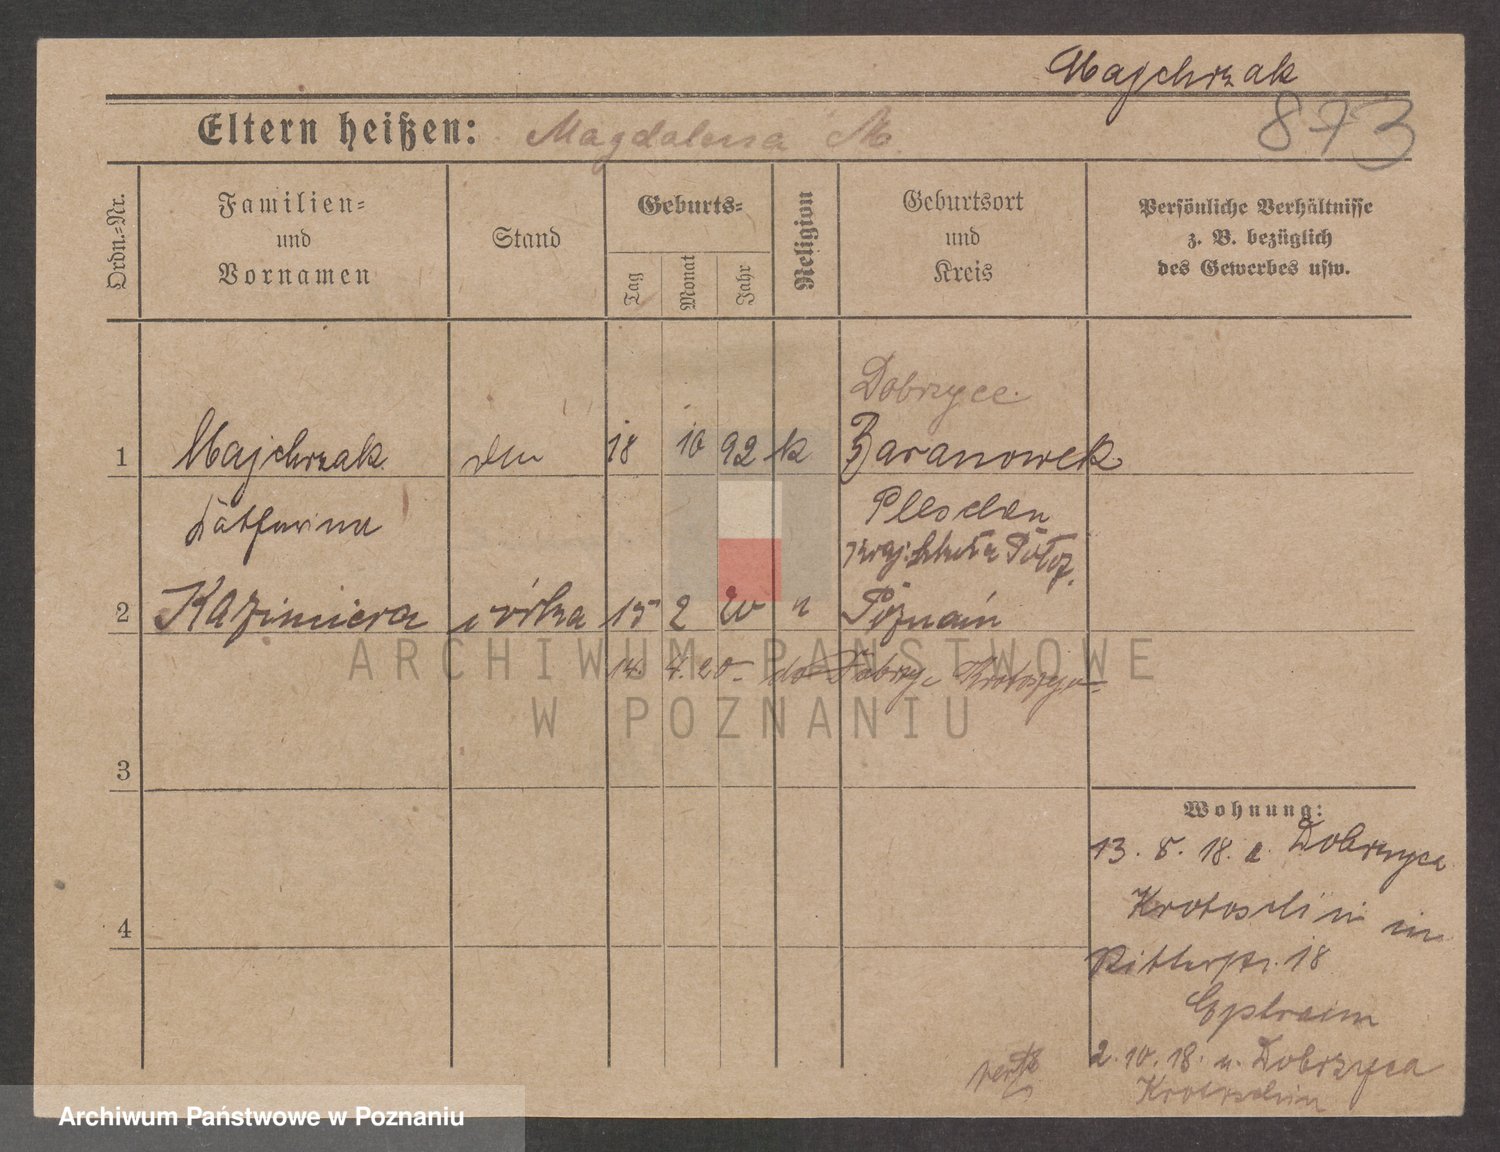 Majchrzak
873
Eltern heißen: Magdalena M.
Ordn.-Nr.
Familien-
und
Vornamen
Stand
Geburts-
Tag
Monat
Jahr
Religion
Geburtsort
und
Kreis
Persönliche Verhältnisse
z. B. bezüglich
des Gewerbes usw.
Dobrzyce
1 Majchrzak 18 10 92 k Baranowek
Katharina Pleschen
2 Kazimiera córka 15 2 20 Poznań
14. 4. 20 do Dobrzyc Krotoszyn
3
4
Wohnung:
13. 8. 18. Dobrzyca
Krotoschin in
Ritterstr. 18
Ephraim
2. 10. 18. n. Dobrzyca
Krotoschin
verte
ARCHIWUM PAŃSTWOWE
W POZNANIU
Archiwum Państwowe w Poznaniu